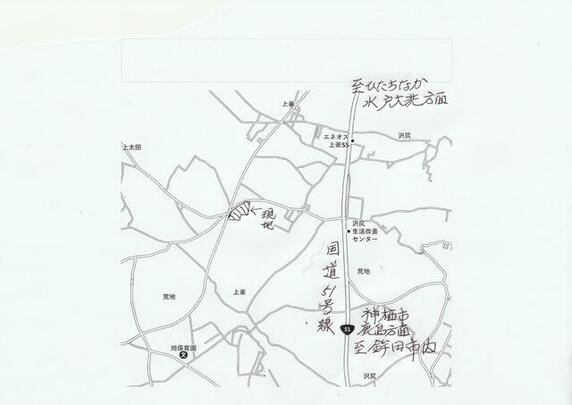 至ひたちなか
水戸大洗方面
上釜
エネオス
上釜SS
沢尻
上太田
←現地
沢尻
生活改善
センター
国道51号線
荒地
荒地
上釜
51
神栖市
鹿島方面
至鉾田市内
旭保育園
文
沢尻